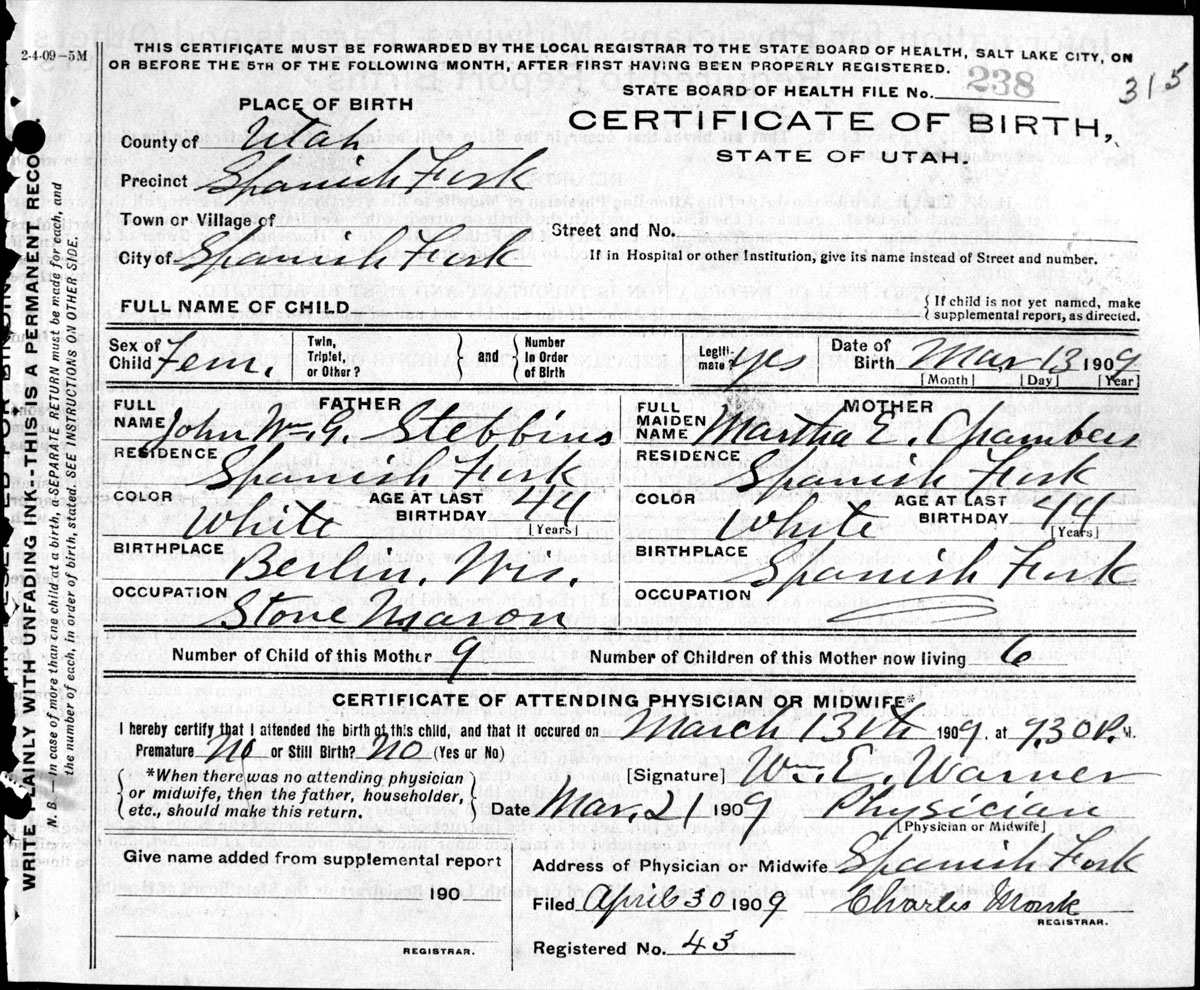 2-4-09-5M
THIS CERTIFICATE MUST BE FORWARDED BY THE LOCAL REGISTRAR TO THE STATE BOARD OF HEALTH, SALT LAKE CITY, ON
OR BEFORE THE 5TH OF THE FOLLOWING MONTH, AFTER FIRST HAVING BEEN PROPERLY REGISTERED.
STATE BOARD OF HEALTH FILE No. 238
315
PLACE OF BIRTH
CERTIFICATE OF BIRTH,
STATE OF UTAH.
County of Utah
Precinct Spanish Fork
Town or Village of
Street and No.
City of Spanish Fork
If in Hospital or other Institution, give its name instead of Street and number.
FULL NAME OF CHILD
{ If child is not yet named, make
supplemental report, as directed.
Sex of Child Fem.
Twin, Triplet, or Other? } and { Number In Order of Birth
Legiti- mate? yes
Date of Birth Mar, 13 1909
[Month] [Day] [Year]
FATHER
FULL NAME John Wm. G. Stebbins
RESIDENCE Spanish Fork
COLOR White
AGE AT LAST BIRTHDAY 44 [Years]
BIRTHPLACE Berlin, Wis.
OCCUPATION Stone Mason
MOTHER
FULL MAIDEN NAME Martha E. Chambers
RESIDENCE Spanish Fork
COLOR White
AGE AT LAST BIRTHDAY 44 [Years]
BIRTHPLACE Spanish Fork
OCCUPATION
Number of Child of this Mother 9
Number of Children of this Mother now living 6
CERTIFICATE OF ATTENDING PHYSICIAN OR MIDWIFE*
I hereby certify that I attended the birth of this child, and that it occured on March 13th 1909. at 7.30 P. M.
Premature No or Still Birth? No (Yes or No)
{ *When there was no attending physician
or midwife, then the father, householder,
etc., should make this return. }
[Signature] W. C. Warner
Date Mar. 21 1909 Physician
[Physician or Midwife]
Give name added from supplemental report
190
REGISTRAR.
Address of Physician or Midwife Spanish Fork
Filed April 30 1909 Charles Monk
REGISTRAR.
Registered No. 43
WRITE PLAINLY WITH UNFADING INK-THIS IS A PERMANENT RECO
N. B. In case of more than one child at a birth, a SEPARATE RETURN must be made for each, and
the number of each, in order of birth, stated. SEE INSTRUCTIONS ON OTHER SIDE.